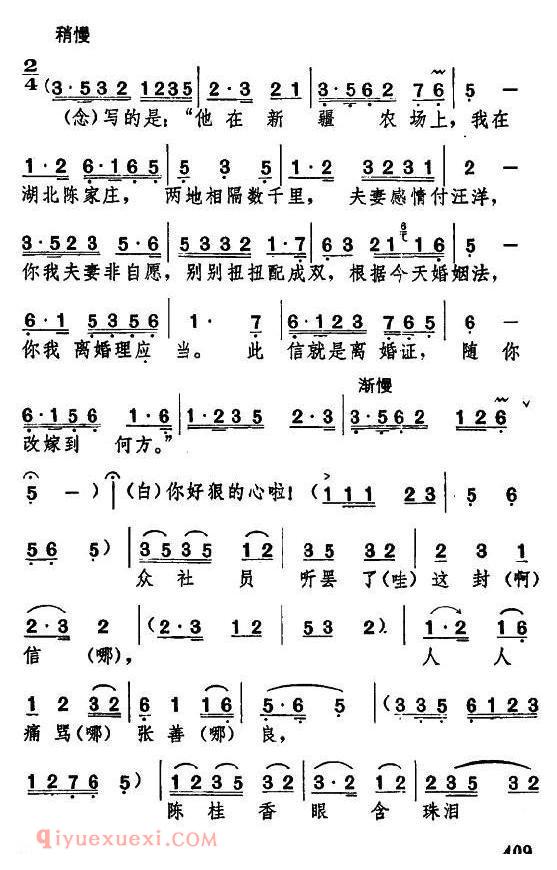 稍慢
2/4 (3·532 1235 | 2·3 21 | 3·562 76 | 5 —
(念)写的是：“他在新疆农场上，我在
1·2 6·165 | 5 3 5 | 1·2 3231 | 2 —
湖北陈家庄，两地相隔数千里，夫妻感情付汪洋，
3·523 5·6 | 5332 1·7 | 63 21 6 16 | 5 —
你我夫妻非自愿，别别扭扭配成双，根据今天婚姻法，
6·1 5356 | 1· 7 | 6·123 765 | 6 —
你我离婚理应当。此信就是离婚证，随你
渐慢
6·156 1·6 | 1·235 2·3 | 3·562 126 ∨
改嫁到何方。”
5 —) | (白)你好狠的心啦！(111 23 | 5 6
56 5) | 3535 12 | 35 332 | 2 3 1
众社员听罢了(哇)这封(啊)
2·3 2 | (2·3 12 | 53 2). | 1·2 16
信(哪)，人人
1 2 32 | 6 1 16 | 5·6 5 | (335 6123
痛骂(哪)张善(哪)良，
1276 5) | 1235 32 | 3·2 12 | 235 32
陈桂香眼含珠泪
qiyuexuexi.com
409